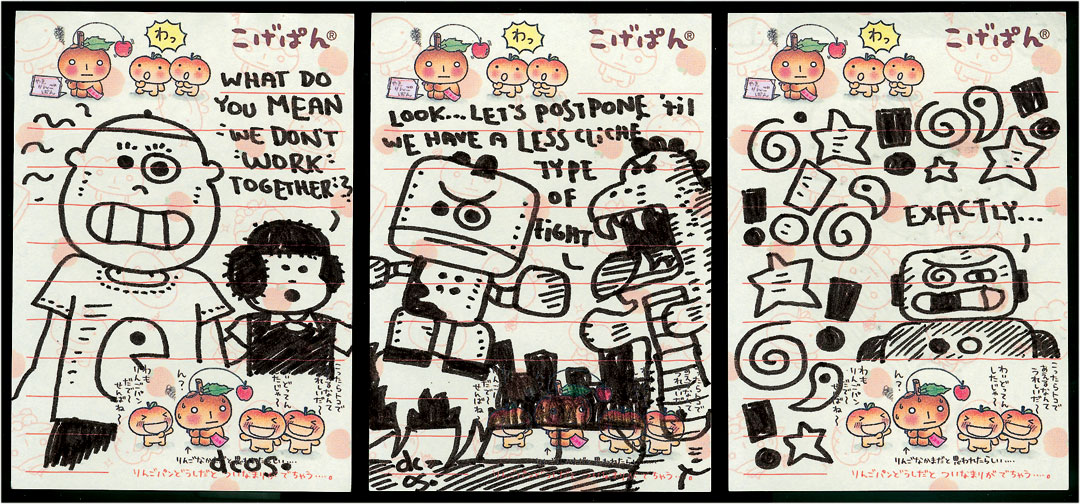 わっ
こげぱん®
WHAT DO
YOU MEAN
"WE DON'T
WORK
TOGETHER"?
こったらトコで
うれしいだ〜
ん?
りんごパン
↑りんごなかまだと思われたらしい…
りんごパンどうしだと ついなまりが でちゃう……。
dcos.
わっ
こげぱん®
LOOK... LET'S POSTPONE 'til
WE HAVE A LESS CLiCHE
TYPE
OF
FIGHT
りんごパンどうしだと ついなまりが でちゃう……。
わっ
こげぱん®
EXACTLY...
こったらトコで
あえるなんて
うれしいだ〜
わいどってん
したじゃ〜
ん?
わも
りんごパン
↑りんごなかまだと思われたらしい…
りんごパンどうしだと ついなまりが でちゃう……。